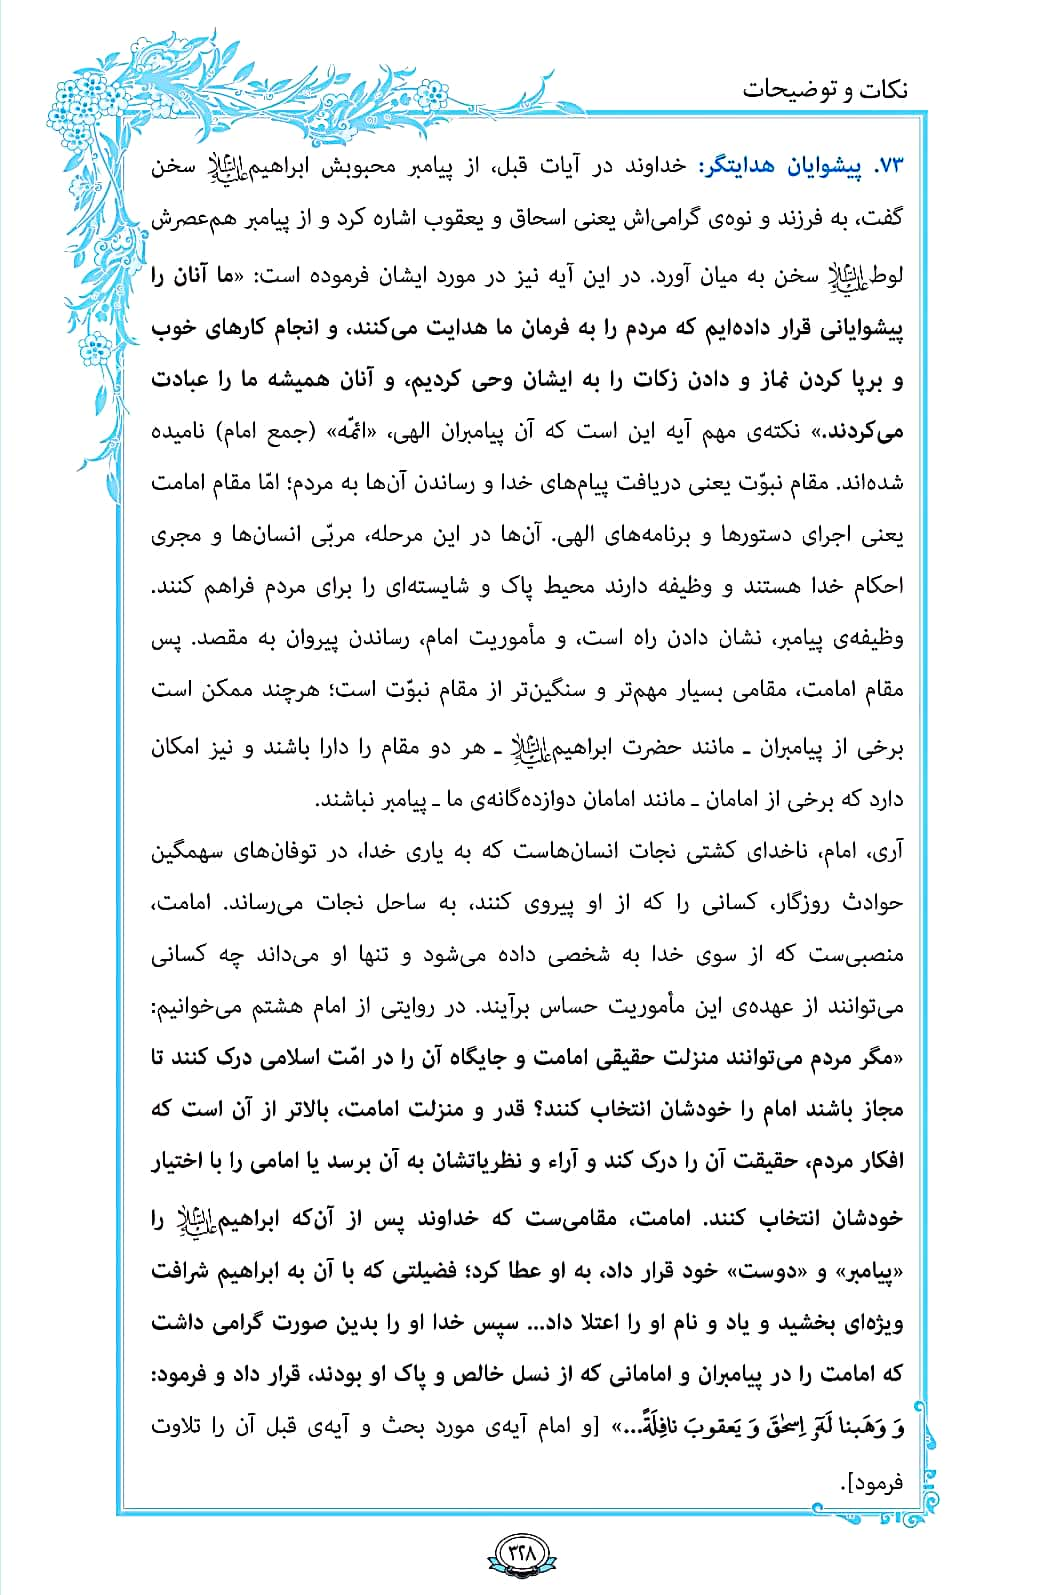 نکات و توضیحات
۷۳. پیشوایان هدایتگر: خداوند در آیات قبل، از پیامبر محبوبش ابراهیم علیه‌السلام سخن
گفت، به فرزند و نوه‌ی گرامی‌اش یعنی اسحاق و یعقوب اشاره کرد و از پیامبر هم‌عصرش
لوط علیه‌السلام سخن به میان آورد. در این آیه نیز در مورد ایشان فرموده است: «ما آنان را
پیشوایانی قرار داده‌ایم که مردم را به فرمان ما هدایت می‌کنند، و انجام کارهای خوب
و برپا کردن نماز و دادن زکات را به ایشان وحی کردیم، و آنان همیشه ما را عبادت
می‌کردند.» نکته‌ی مهم آیه این است که آن پیامبران الهی، «ائمّه» (جمع امام) نامیده
شده‌اند. مقام نبوّت یعنی دریافت پیام‌های خدا و رساندن آن‌ها به مردم؛ امّا مقام امامت
یعنی اجرای دستورها و برنامه‌های الهی. آن‌ها در این مرحله، مربّی انسان‌ها و مجری
احکام خدا هستند و وظیفه دارند محیط پاک و شایسته‌ای را برای مردم فراهم کنند.
وظیفه‌ی پیامبر، نشان دادن راه است، و مأموریت امام، رساندن پیروان به مقصد. پس
مقام امامت، مقامی بسیار مهم‌تر و سنگین‌تر از مقام نبوّت است؛ هرچند ممکن است
برخی از پیامبران ـ مانند حضرت ابراهیم علیه‌السلام ـ هر دو مقام را دارا باشند و نیز امکان
دارد که برخی از امامان ـ مانند امامان دوازده‌گانه‌ی ما ـ پیامبر نباشند.
آری، امام، ناخدای کشتی نجات انسان‌هاست که به یاری خدا، در توفان‌های سهمگین
حوادث روزگار، کسانی را که از او پیروی کنند، به ساحل نجات می‌رساند. امامت،
منصبی‌ست که از سوی خدا به شخصی داده می‌شود و تنها او می‌داند چه کسانی
می‌توانند از عهده‌ی این مأموریت حساس برآیند. در روایتی از امام هشتم می‌خوانیم:
«مگر مردم می‌توانند منزلت حقیقی امامت و جایگاه آن را در امّت اسلامی درک کنند تا
مجاز باشند امام را خودشان انتخاب کنند؟ قدر و منزلت امامت، بالاتر از آن است که
افکار مردم، حقیقت آن را درک کند و آراء و نظریاتشان به آن برسد یا امامی را با اختیار
خودشان انتخاب کنند. امامت، مقامی‌ست که خداوند پس از آن‌که ابراهیم علیه‌السلام را
«پیامبر» و «دوست» خود قرار داد، به او عطا کرد؛ فضیلتی که با آن به ابراهیم شرافت
ویژه‌ای بخشید و یاد و نام او را اعتلا داد... سپس خدا او را بدین صورت گرامی داشت
که امامت را در پیامبران و امامانی که از نسل خالص و پاک او بودند، قرار داد و فرمود:
وَ وَهَبنا لَهُ‌ۥٓ اِسحٰقَ وَ یَعقوبَ نافِلَةً...» [و امام آیه‌ی مورد بحث و آیه‌ی قبل آن را تلاوت
فرمود].
۳۲۸